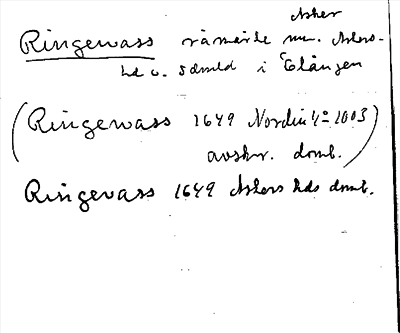 Asker
Ringevass råmärke m. Askers
hd o. Sdmld i Elången
(Ringevass 1649 Nordin 4:o 1003
avskr. domb.)
Ringevass 1649 Askers hds domb.